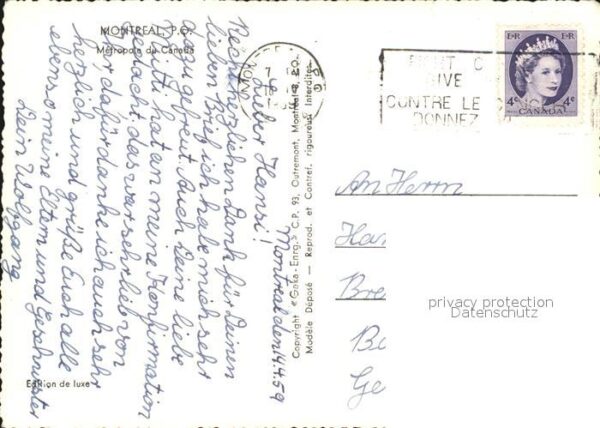 MONTREAL, P.Q.
Métropole du Canada
MONTRE
7
1959
FIGHT C
GIVE
CONTRE LE CANCER
DONNEZ
E II R
E II R
4¢
4¢
CANADA
Montreal den 14.4.59
Lieber Hansi!
Recht herzlichen Dank für Deinen
lieben Brief, ich habe mich sehr
dazu gefreut. Auch Deine liebe
hat an meine Konfirmation
gedacht, das war sehr lieb von
ihr dafür danke ich auch sehr
herzlich und grüße Euch alle
ebenso meine Eltern und Geschwister
Dein Wolfgang
Copyright «Goka-Enrg.» C.P. 93, Outremont, Montréal
Modèle Déposé — Reprod. et Contref. rigoureus. Interdites
An Herrn
Han
Bre
Be
Ge
privacy protection
Datenschutz
Edition de luxe